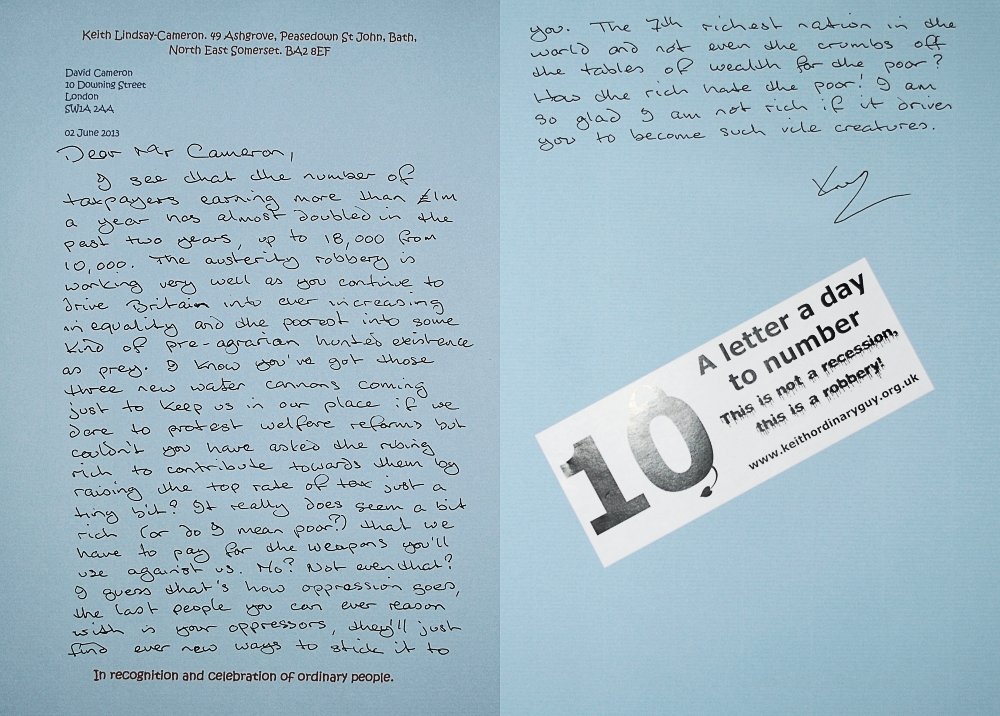 Keith Lindsay-Cameron. 49 Ashgrove, Peasedown St John, Bath,
North East Somerset. BA2 8EF
David Cameron
10 Downing Street
London
SW1A 2AA
02 June 2013
Dear Mr Cameron,
I see that the number of
taxpayers earning more than £1m
a year has almost doubled in the
past two years, up to 18,000 from
10,000. The austerity robbery is
working very well as you continue to
drive Britain into ever increasing
inequality and the poorest into some
kind of pre-agrarian hunted existence
as prey. I know you've got those
three new water cannons coming
just to keep us in our place if we
dare to protest welfare reforms but
couldn't you have asked the rising
rich to contribute towards them by
raising the top rate of tax just a
tiny bit? It really does seem a bit
rich (or do I mean poor?) that we
have to pay for the weapons you'll
use against us. No? Not even that?
I guess that's how oppression goes,
the last people you can ever reason
with is your oppressors, they'll just
find ever new ways to stick it to
In recognition and celebration of ordinary people.
you. The 7th richest nation in the
world and not even the crumbs off
the tables of wealth for the poor?
How the rich hate the poor! I am
so glad I am not rich if it drives
you to become such vile creatures.
A letter a day
to number
10
This is not a recession,
this is a robbery!
www.keithordinaryguy.org.uk